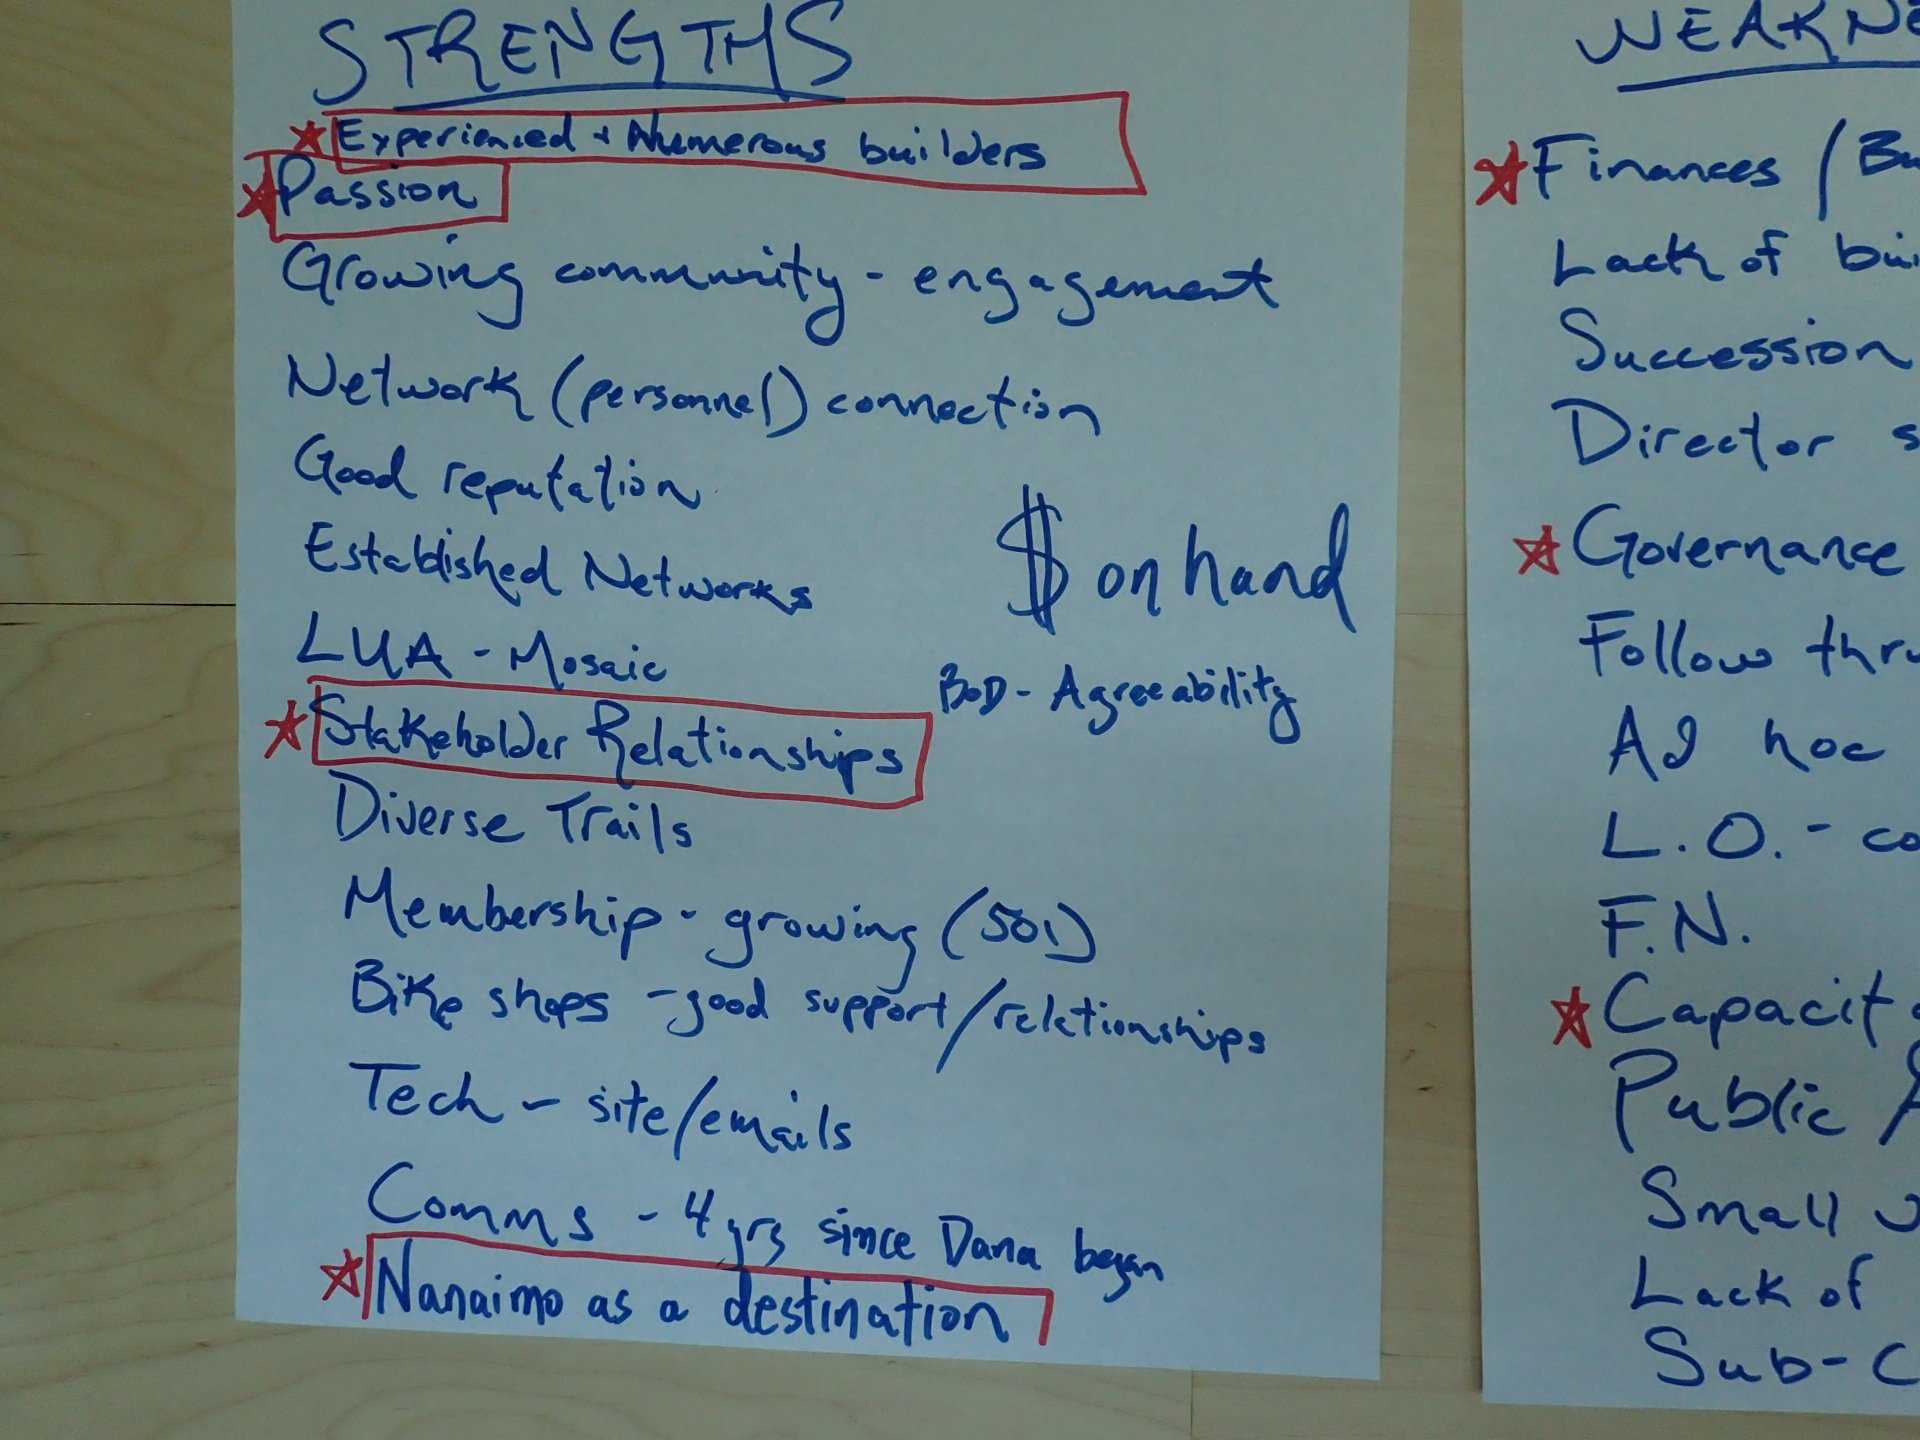 STRENGTHS
Experienced + Numerous builders
Passion
Growing community - engagement
Network (personnel) connection
Good reputation
Established Networks
$ on hand
LUA - Mosaic
BOD - Agreeability
Stakeholder Relationships
Diverse Trails
Membership - growing (501)
Bike shops - good support/relationships
Tech - site/emails
Comms - 4 yrs since Dana began
Nanaimo as a destination
WEAKNE
Finances / Bu
Lack of bui
Succession
Director s
Governance
Follow thru
Ad hoc
L.O. - co
F.N.
Capacit
Public
Small
Lack of
Sub-C